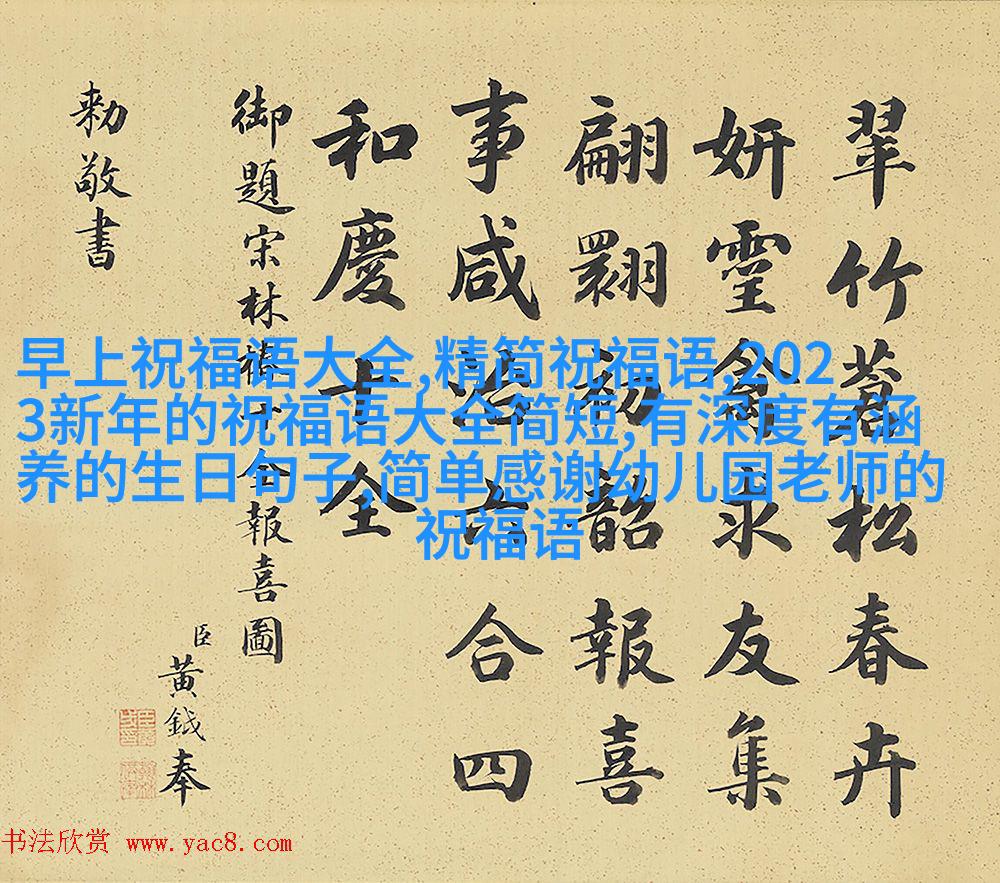 翠竹蒼松春卉
妍靈禽永友集
翩翾初韶報喜
事咸六合四
和慶十全
御題宋林椿十全報喜圖
臣黃鉞奉
勅敬書
早上祝福语大全,精简祝福语,202
3新年的祝福语大全简短,有深度有涵
养的生日句子,简单感谢幼儿园老师的
祝福语
书法欣赏 www.yac8.com